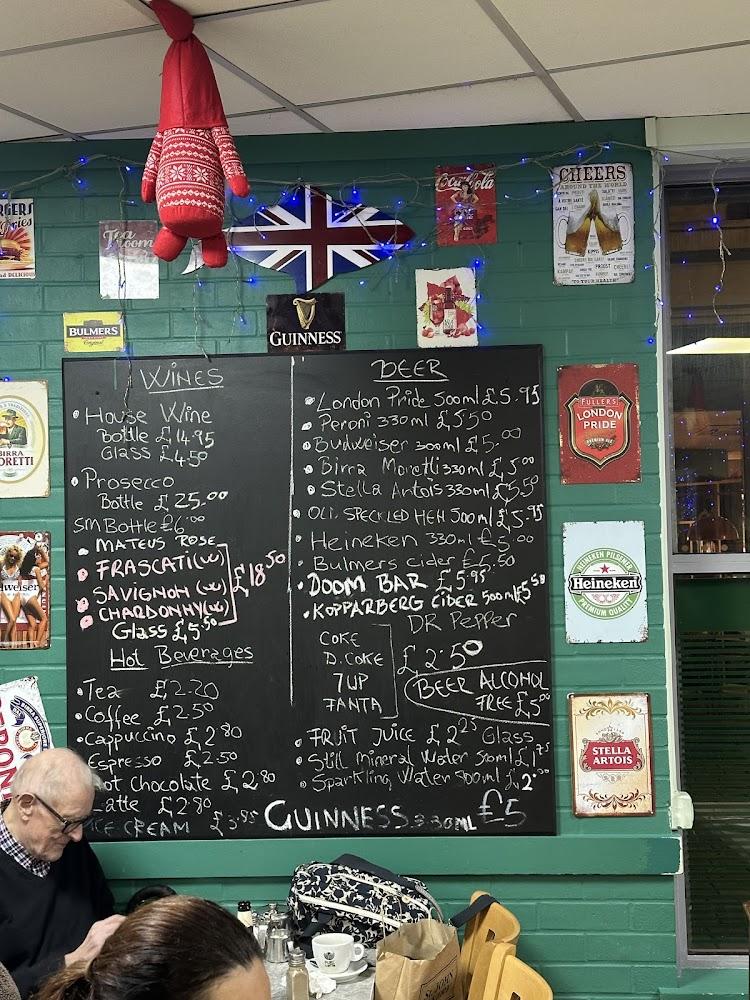 RGERS
Fries
DELICIOUS
Tea
room
Coca-Cola
CHEERS
AROUND THE WORLD
KIPPIS
PROOST
CHEERS!
"TO YOUR HEALTH"
BULMERS
Original
GUINNESS
BIRRA
MORETTI
FULLER'S
LONDON
PRIDE
HEINEKEN PILSENER
Heineken
PREMIUM QUALITY
STELLA
ARTOIS
dweiser
WINES
House Wine
Bottle £14.95
Glass £4.50
Prosecco
Bottle £25.00
SM Bottle £6.00
MATEUS ROSE
FRASCATI (W)
SAVIGNON (W)
CHARDONNY (W)
£18.50
Glass £5.50
Hot Beverages
Tea £2.20
Coffee £2.50
Cappuccino £2.80
Espresso £2.50
Hot Chocolate £2.80
Latte £2.80
ICE CREAM £3.95
BEER
London Pride 500ml £5.95
Peroni 330ml £5.50
Budweiser 300ml £5.00
Birra Moretti 330ml £5.00
Stella Antois 330ml £5.50
OLD SPECKLED HEN 500ml £5.95
Heineken 330ml £5.00
Bulmers cider £5.50
DOOM BAR £5.95
KOPPARBERG CIDER 500ml £5.50
DR Pepper
COKE
D.COKE
7UP
FANTA
£2.50
BEER ALCOHOL
FREE £5.00
FRUIT JUICE £2.25 Glass
Still Mineral Water 500ml £1.75
Sparkling Water 500ml £2.00
GUINNESS 330ML £5